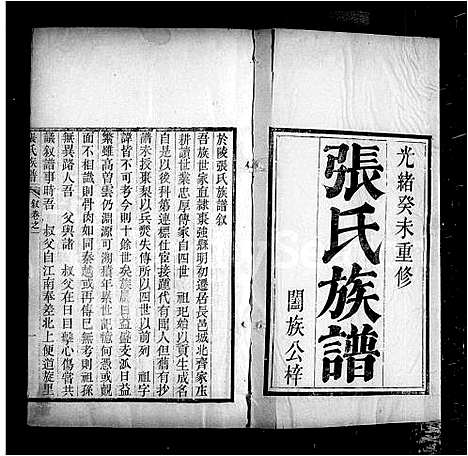 光緒癸未重修
張氏族譜
闔族公梓
於陵張氏族譜叙
吾族世家直隸棗強縣明初遷居長邑城北齊家庄
耕讀世業忠厚傳家自四世 祖玘始以歲貢生成名
自是以後科第連綿仕宦接踵代有聞人但舊有抄
譜未授棗梨以兵燹失傳所以四世以前列 祖字
諱皆不可考到今十餘世矣族屬日益盛支派日益
繁雖高曾雲仍淵源可溯積年累世記憶何易或覿
面而不相識則骨肉如同秦越或再傳已無考則祖孫
無異路人吾 父與諸 叔父在日目擊心傷嘗共
議叙譜事時吾 叔父自江南奉差北上便道旋里
張氏族譜 叙卷之一